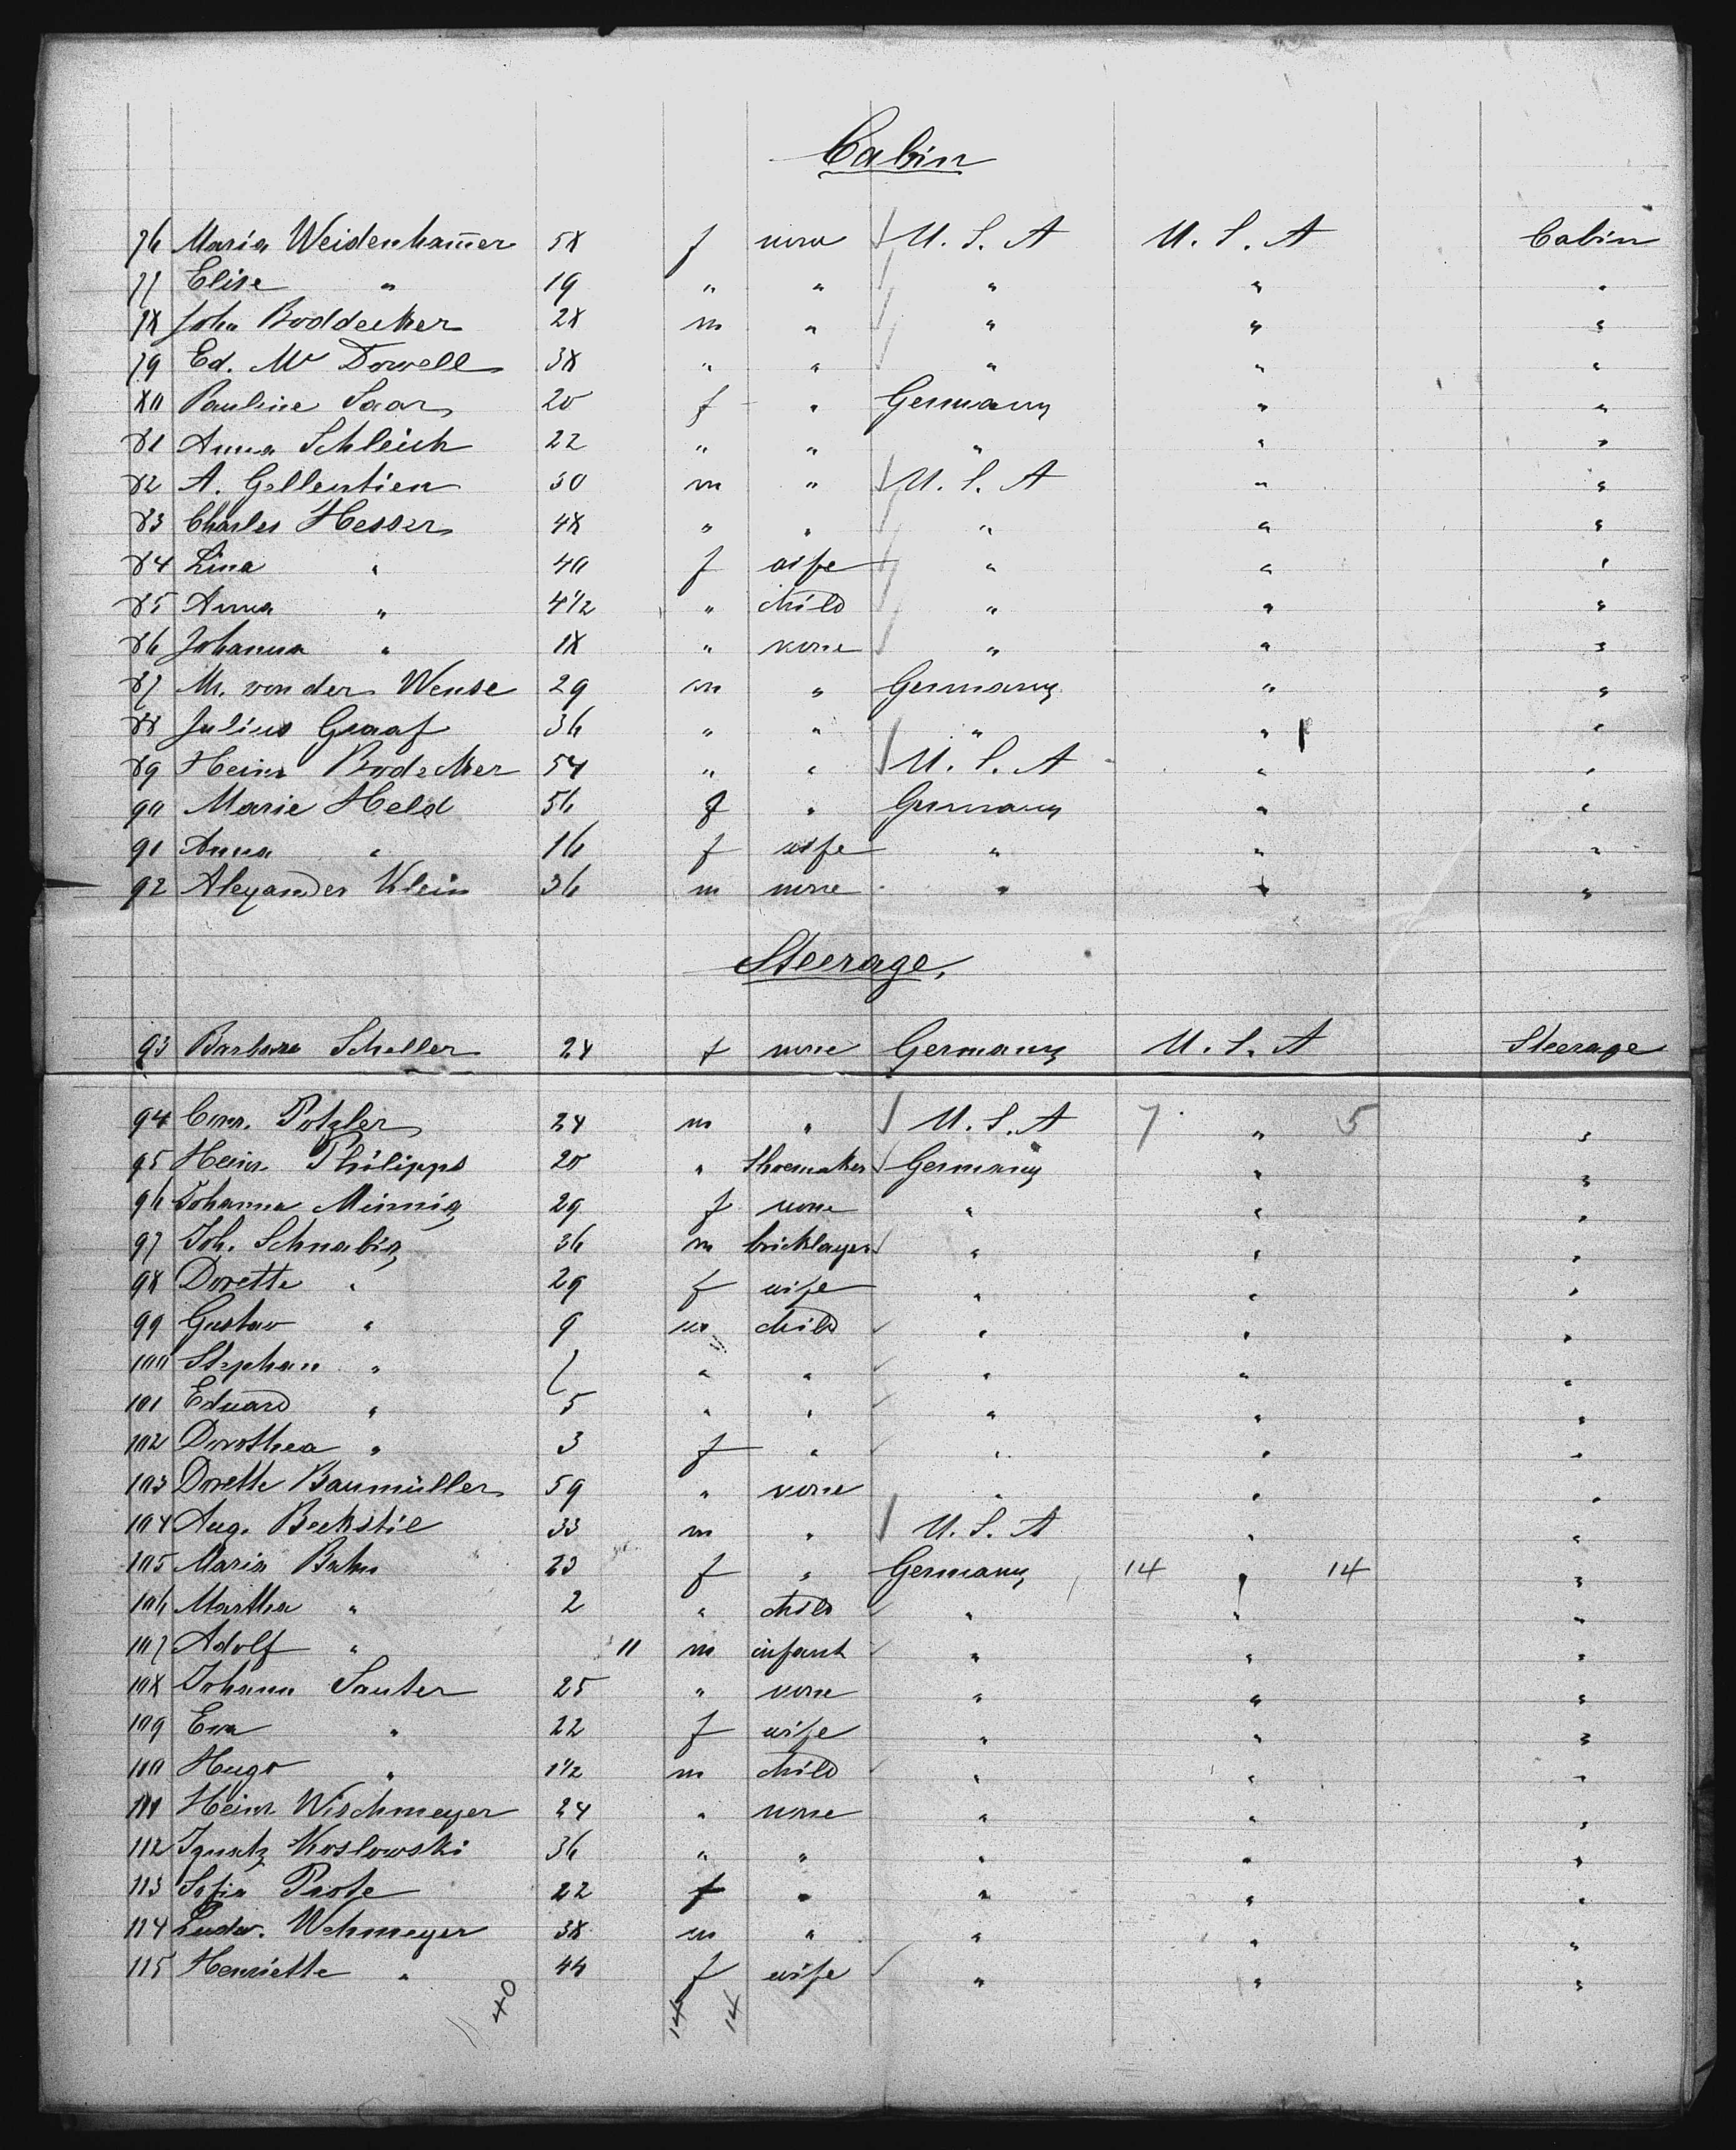 Cabin
76 Maria Weidenham̅er 58 f none U. S. A U. S. A Cabin
77 Elise " 19 " " " " "
78 John Boddecker 28 m " " " "
79 Ed. Mc Dowell 38 " " " " "
80 Pauline Saar 20 f " Germany " "
81 Anna Schleich 22 " " " " "
82 A. Gellentien 30 m " U. S. A " "
83 Charles Hesser 48 " " " " "
84 Lina " 40 f wife " " "
85 Anna " 4 1/2 " child " " "
86 Johanna " 18 " none " " "
87 M. von der Wense 29 m " Germany " "
88 Julius Graaf 36 " " " " "
89 Heinr Bodecker 54 " " U. S. A " "
90 Marie Held 56 f " Germany " "
91 Anna " 16 f wife " " "
92 Alexander Klein 36 m none " " "
Steerage.
93 Barbara Scheller 24 f none Germany U. S. A Steerage
94 Potzler 24 m " U. S. A 7 " 5 "
95 Heinr Philipps 20 " Shoemaker Germany " "
96 Johanna Minnig 29 f none " " "
97 Joh. Schnabig 36 m bricklayer " " "
98 Dorette " 29 f wife " " "
99 Gustav " 9 m child " " "
100 Stephan " 7 " " " " "
101 Eduard " 5 " " " " "
102 Dorothea " 3 f " " " "
103 Dorette Baumüller 59 " none " " "
104 Aug. Beckstie 33 m " U. S. A " "
105 Maria Bahn 23 f " Germany 14 " 14 "
106 Martha " 2 " child " " "
107 Adolf " 11 m infant " " "
108 Johann Sauter 25 " none " " "
109 Eva " 22 f wife " " "
110 Hugo " 1 1/2 m child " " "
111 Heinr Wischmeyer 24 " none " " "
112 Ignatz Koslowski 36 " " " " "
113 Sofia Piote 22 f " " " "
114 Ludw. Wehmeyer 38 m " " " "
115 Henriette " 44 f wife " " "
40 14 14